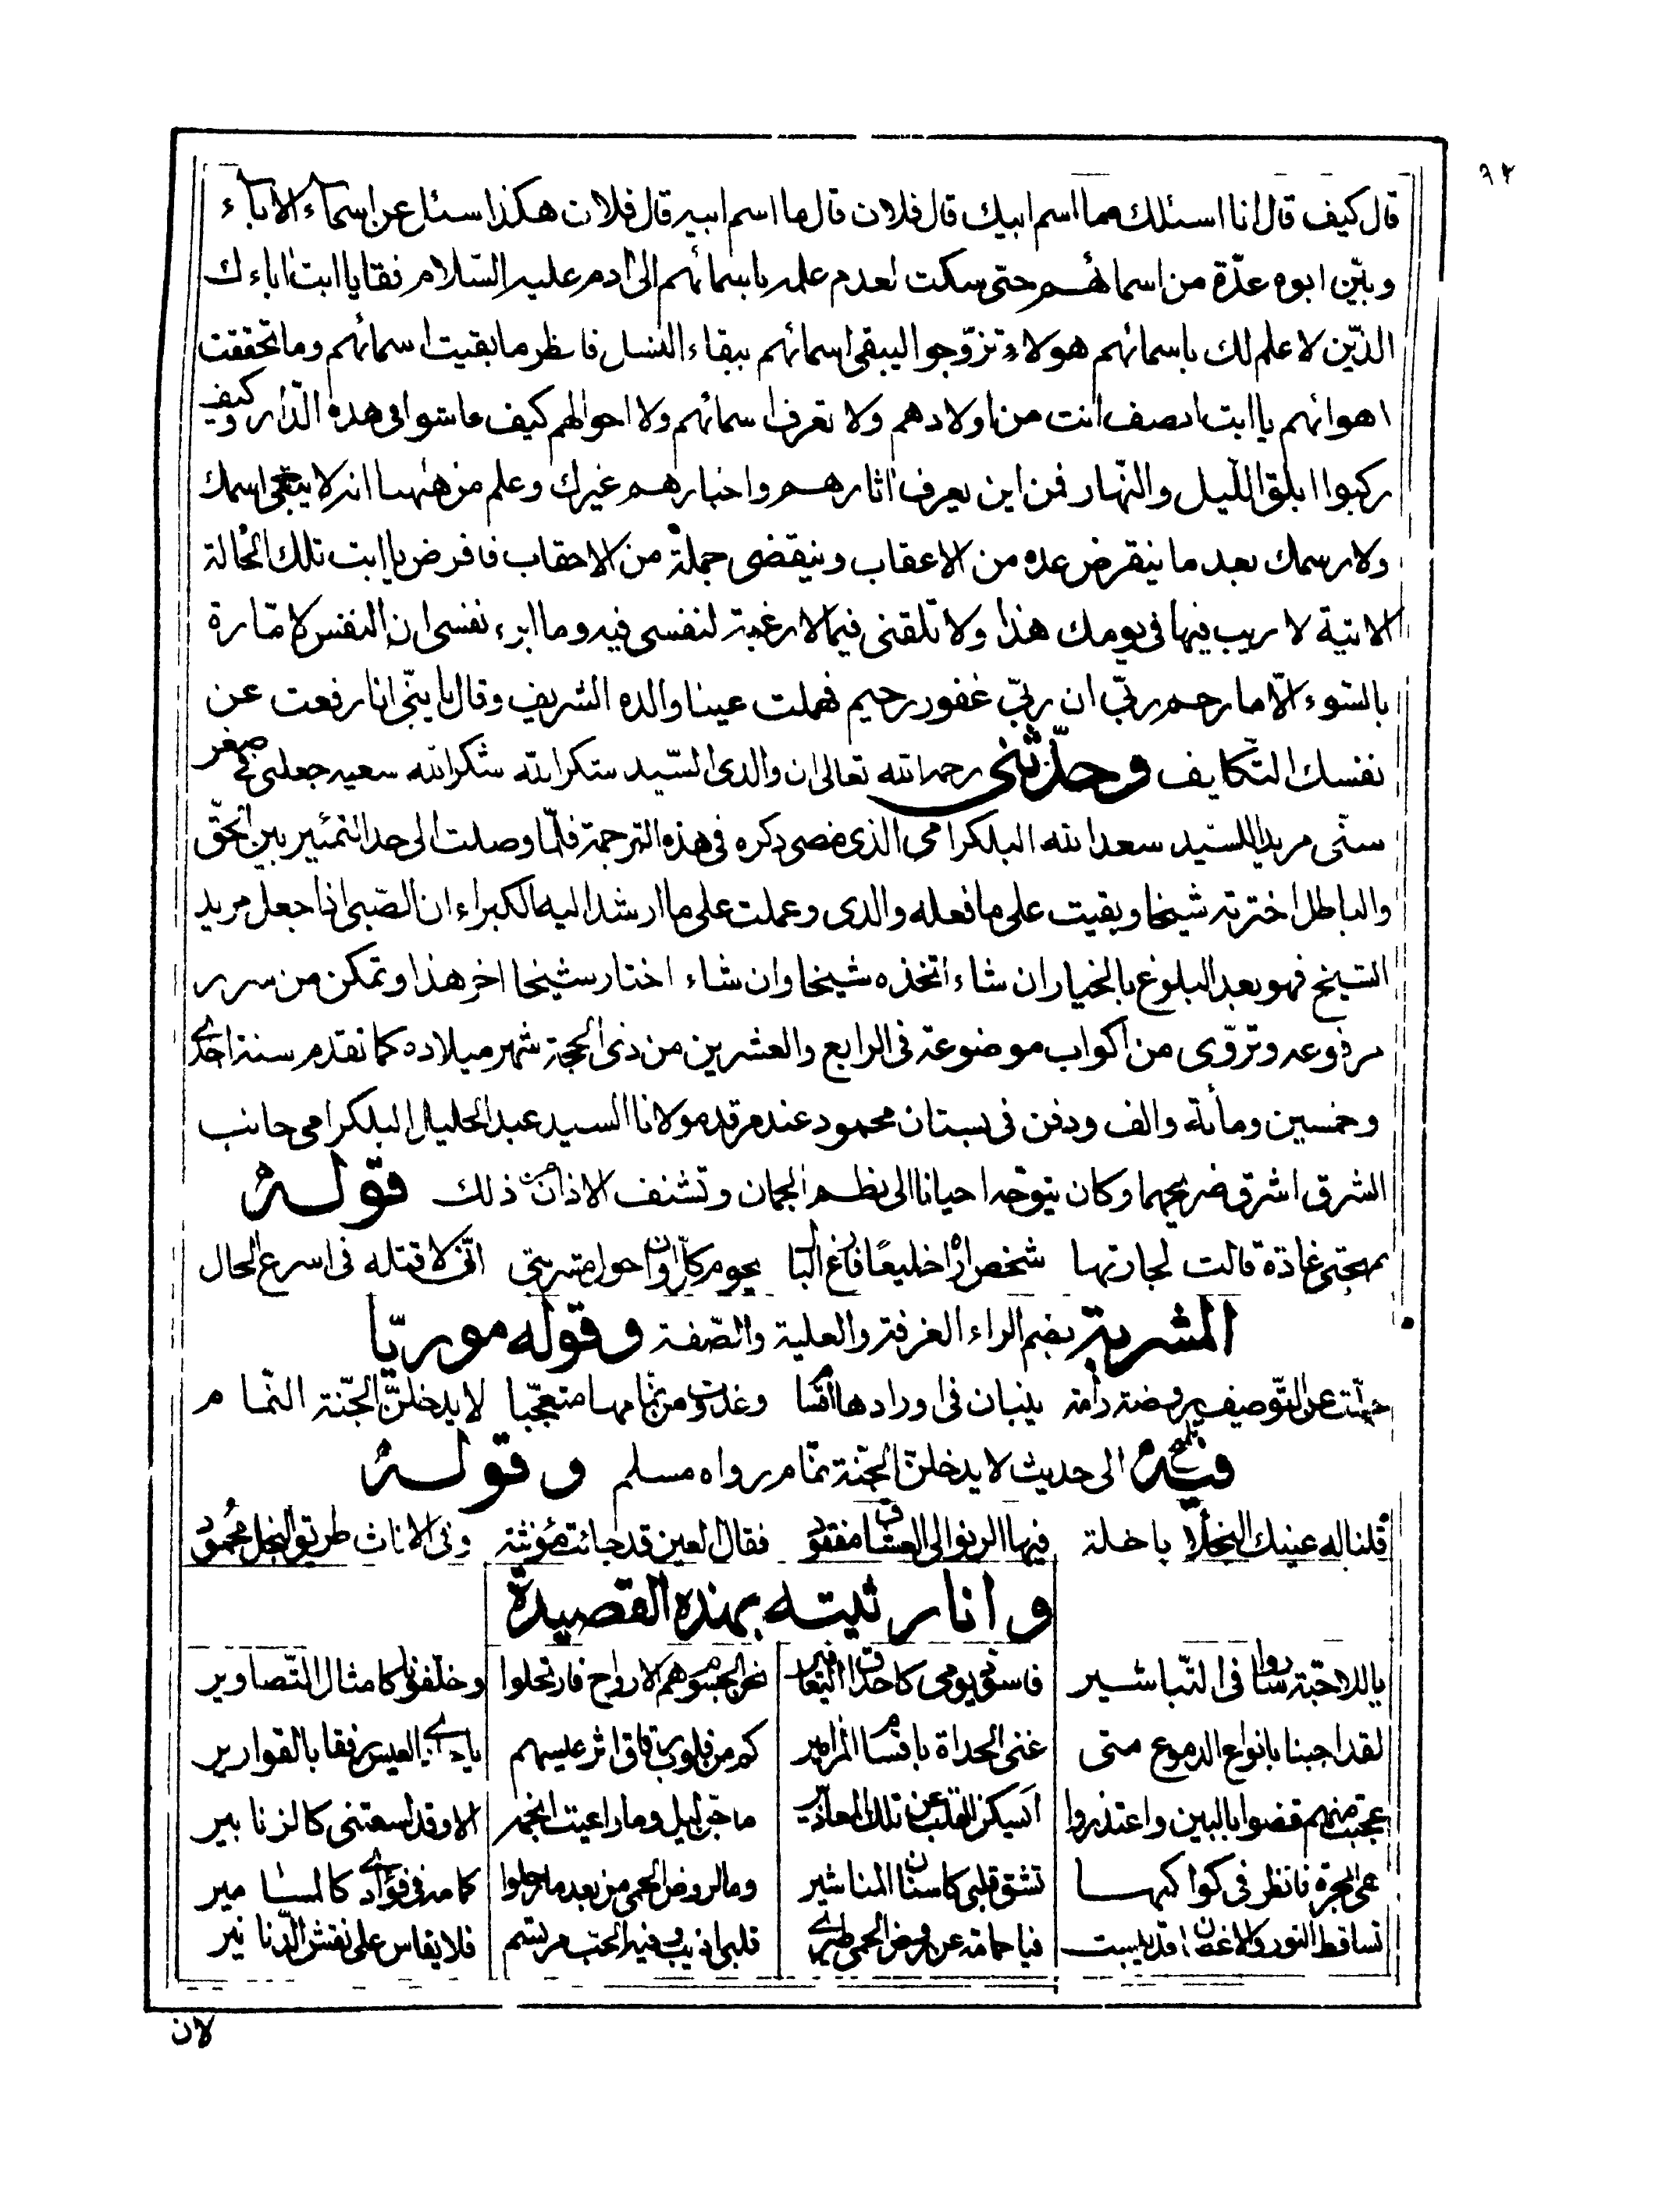 ٩٢
قال كيف قال انا اسئلك مما اسم ابيك قال فلان قال ما اسم ابيه قال فلان هكذا سئل عن اسماء الاباء
وبيّن ابوه عدّة من اسمائهم حتى سكت لعدم علمه باسمائهم الى ادم عليه السّلام فقا يا ابت اباءك
الذّين لا علم لك باسمائهم هولاء تزوّجوا ليبقى اسمائهم ببقاء النسل فانظر ما بقيت اسمائهم وما تحققت
اهوائهم يا ابت انصف انت من اولادهم ولا تعرف اسمائهم ولا احوالهم كيف عاشوا فى هذه الدّار وكيف
ركبوا ابلق اللّيل والنّهار فمن اين يعرف اثارهم واخبارهم غيرك وعلم من ههنا انه لا يبقى اسمك
ولا رسمك بعد ما ينقرض عده من الاعقاب وينقضى جملة من الاحقاب فافرض يا ابت تلك الحالة
الاتية لا ريب فيها فى يومك هذا ولا تلقنى فيما لا رغبة لنفسى فيه وما ابرء نفسى ان النفس لامّارة
بالسّوء الّا ما رحم ربّى ان ربّى غفور رحيم فهملت عينا والده الشريف وقال يا بنّى انا رفعت عن
نفسك التّكايف وحدّثنى رحمه الله تعالى ان والدى السّيد شكر الله شكر الله سعيه جعلنى فى صغر
سنّى مريدا للسّيد سعد الله البلكرامى الذى مضى ذكره فى هذه الترجمة فلمّا وصلت الى حد التمئيز بين الحقّ
والباطل اخترته شيخا وبقيت على ما فعله والدى وعملت على ما ارشد اليه الكبراء ان الصّبى اذا جعل مريد
الشيخ فهو بعد البلوغ بالخيار ان شاء اتخذه شيخا وان شاء اختار شيخا اخر هذا وتمكن من سرر
مرفوعه وتروّى من اكواب موضوعة فى الرابع والعشرين من ذى الحجة شهر ميلاده كما تقدم سنة احدے
وخمسين ومأئة والف ودفن فى بستان محمود عند مرقد مولانا السيد عبد الجليل البلكرامى جانب
الشرق اشرق ضريحهما وكان يتوجه احيانا الى نظم الجمان وتشنف الاذان من ذلك قوله
بمهجتى غادة قالت لجارتها شخص اراه خليعًا فارغ البال يحوم كرّات حول مشربتى انّى لاقتله فى اسرع الحال
المشربة بضم الراء الغرفة والعلية والصّفة وقوله موريّا
جلّت عن التّوصيف روضة رامة وغدوت من نمّامها متعجّبا لا يدخلنّ الجّنة النّمام
فيه تلميح الى حديث لا يدخلنّ الجّنة نمّام رواه مسلم وقوله
قلنا له عينك النجلاء باخلة فيها الرنو الى العشاق مفقود فقال لعين قد جائت مؤنثة وفى الاناث طريق البخل محمود
وانا رثيته بهذه القصيدة
يا للاحّبة فى التّباشير وخلّفونا كامثال التّصاوير
لقد اجبنا بانواع الدموع متى غنى الحداة باقسام المزامير كم من قلوب رقاق اثر عيسهم العيس رفقا بالقوارير
عجبت منهم قضوا بالبين واعتذروا ايسكن القلب عن تلك المعاذير ما جن ليل وما راعيت انجمه الا وقد لسعتنى كالزنابير
على المجرّة فانظر فى كواكبها تشق قلبى كاسنان المناشير وما لروض الحمى من بعد ما رحلوا كمامه فى فؤادے كالمسامير
تساقط النور والاغصان قد يبست فيا حمامة عن روض الحمى طيرے قلبى اذيب وفيه الحبّ مرتسم فلا يقاس على نقش الدّنانير
لان